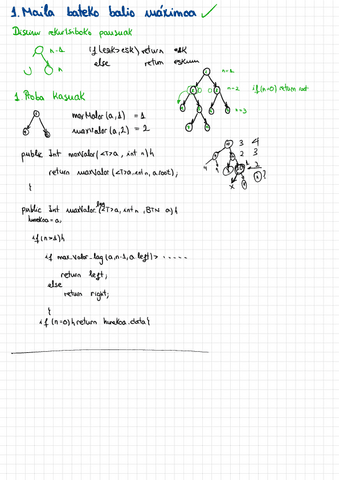 1. Maila bateko balio maximoa ✓
Diseinu errekurtsiboko pausuak
if (esk>esk) return esk
else return eskuin
n-1
n
n=1
n=2
n=3
if (n=0) return root
1. Proba kasuak
maxValor (a,1) = 1
maxValor (a,2) = 2
3 4
2 3
public Int maxValor (<T> a, int n) {
return maxValor (<T> a, int n, a.root);
}
public Int maxValor_lag (<T> a, int n, BTN a) {
if (n>1) {
if max_valor_lag (a, n-1, a left) > .....
return left;
else
return right;
}
if (n=0) { return .data {